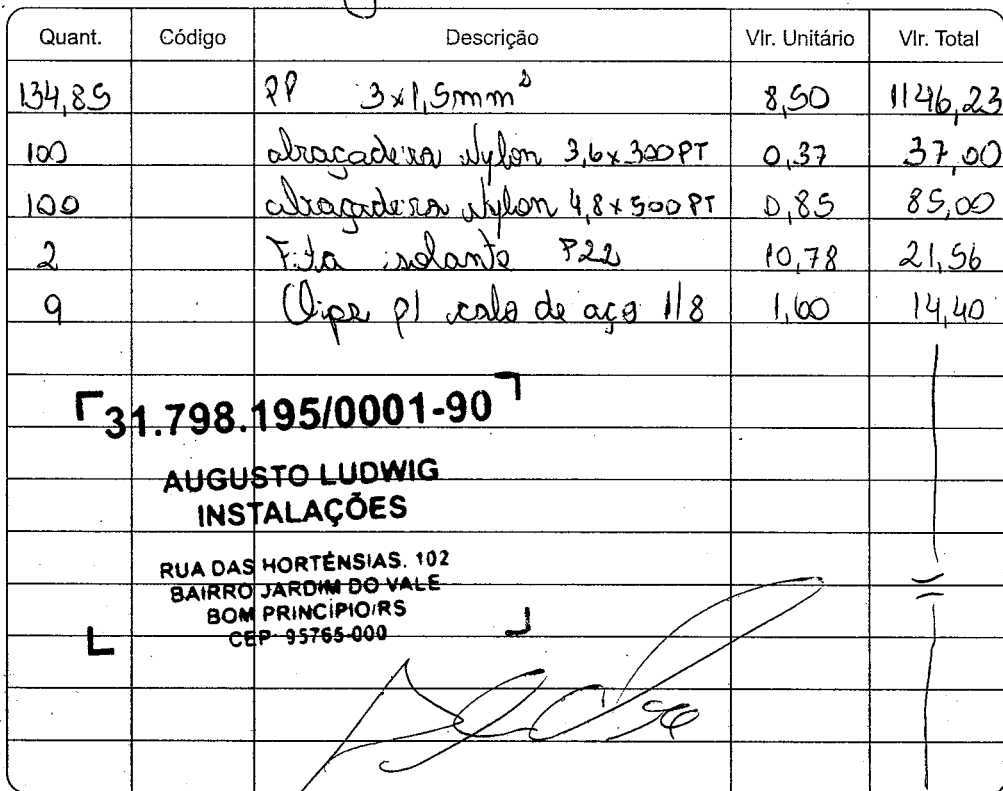 Quant. Código Descrição Vlr. Unitário Vlr. Total
134,85 PP 3x1,5mm² 8,50 1146,23
100 abraçadeira Nylon 3,6x300PT 0,37 37,00
100 abraçadeira Nylon 4,8x500PT 0,85 85,00
2 Fita isolante P22 10,78 21,56
9 Clips p/ cabo de aço 1/8 1,60 14,40
31.798.195/0001-90
AUGUSTO LUDWIG
INSTALAÇÕES
RUA DAS HORTÊNSIAS. 102
BAIRRO JARDIM DO VALE
BOM PRINCÍPIO/RS
CEP 95765-000